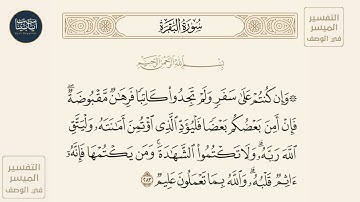 التفسير
الميسر
في الوصف
سُورَةُ البَقَرَةِ
بِسْمِ اللَّهِ الرَّحْمَٰنِ الرَّحِيمِ
۞ وَإِن كُنتُمْ عَلَىٰ سَفَرٍ وَلَمْ تَجِدُوا۟ كَاتِبًا فَرِهَٰنٌ مَّقْبُوضَةٌ ۖ
فَإِنْ أَمِنَ بَعْضُكُم بَعْضًا فَلْيُؤَدِّ ٱلَّذِى ٱؤْتُمِنَ أَمَٰنَتَهُۥ وَلْيَتَّقِ
ٱللَّهَ رَبَّهُۥ ۗ وَلَا تَكْتُمُوا۟ ٱلشَّهَٰدَةَ ۚ وَمَن يَكْتُمْهَا فَإِنَّهُۥٓ
ءَاثِمٌ قَلْبُهُۥ ۗ وَٱللَّهُ بِمَا تَعْمَلُونَ عَلِيمٌ ٢٨٣
التفسير
الميسر
في الوصف